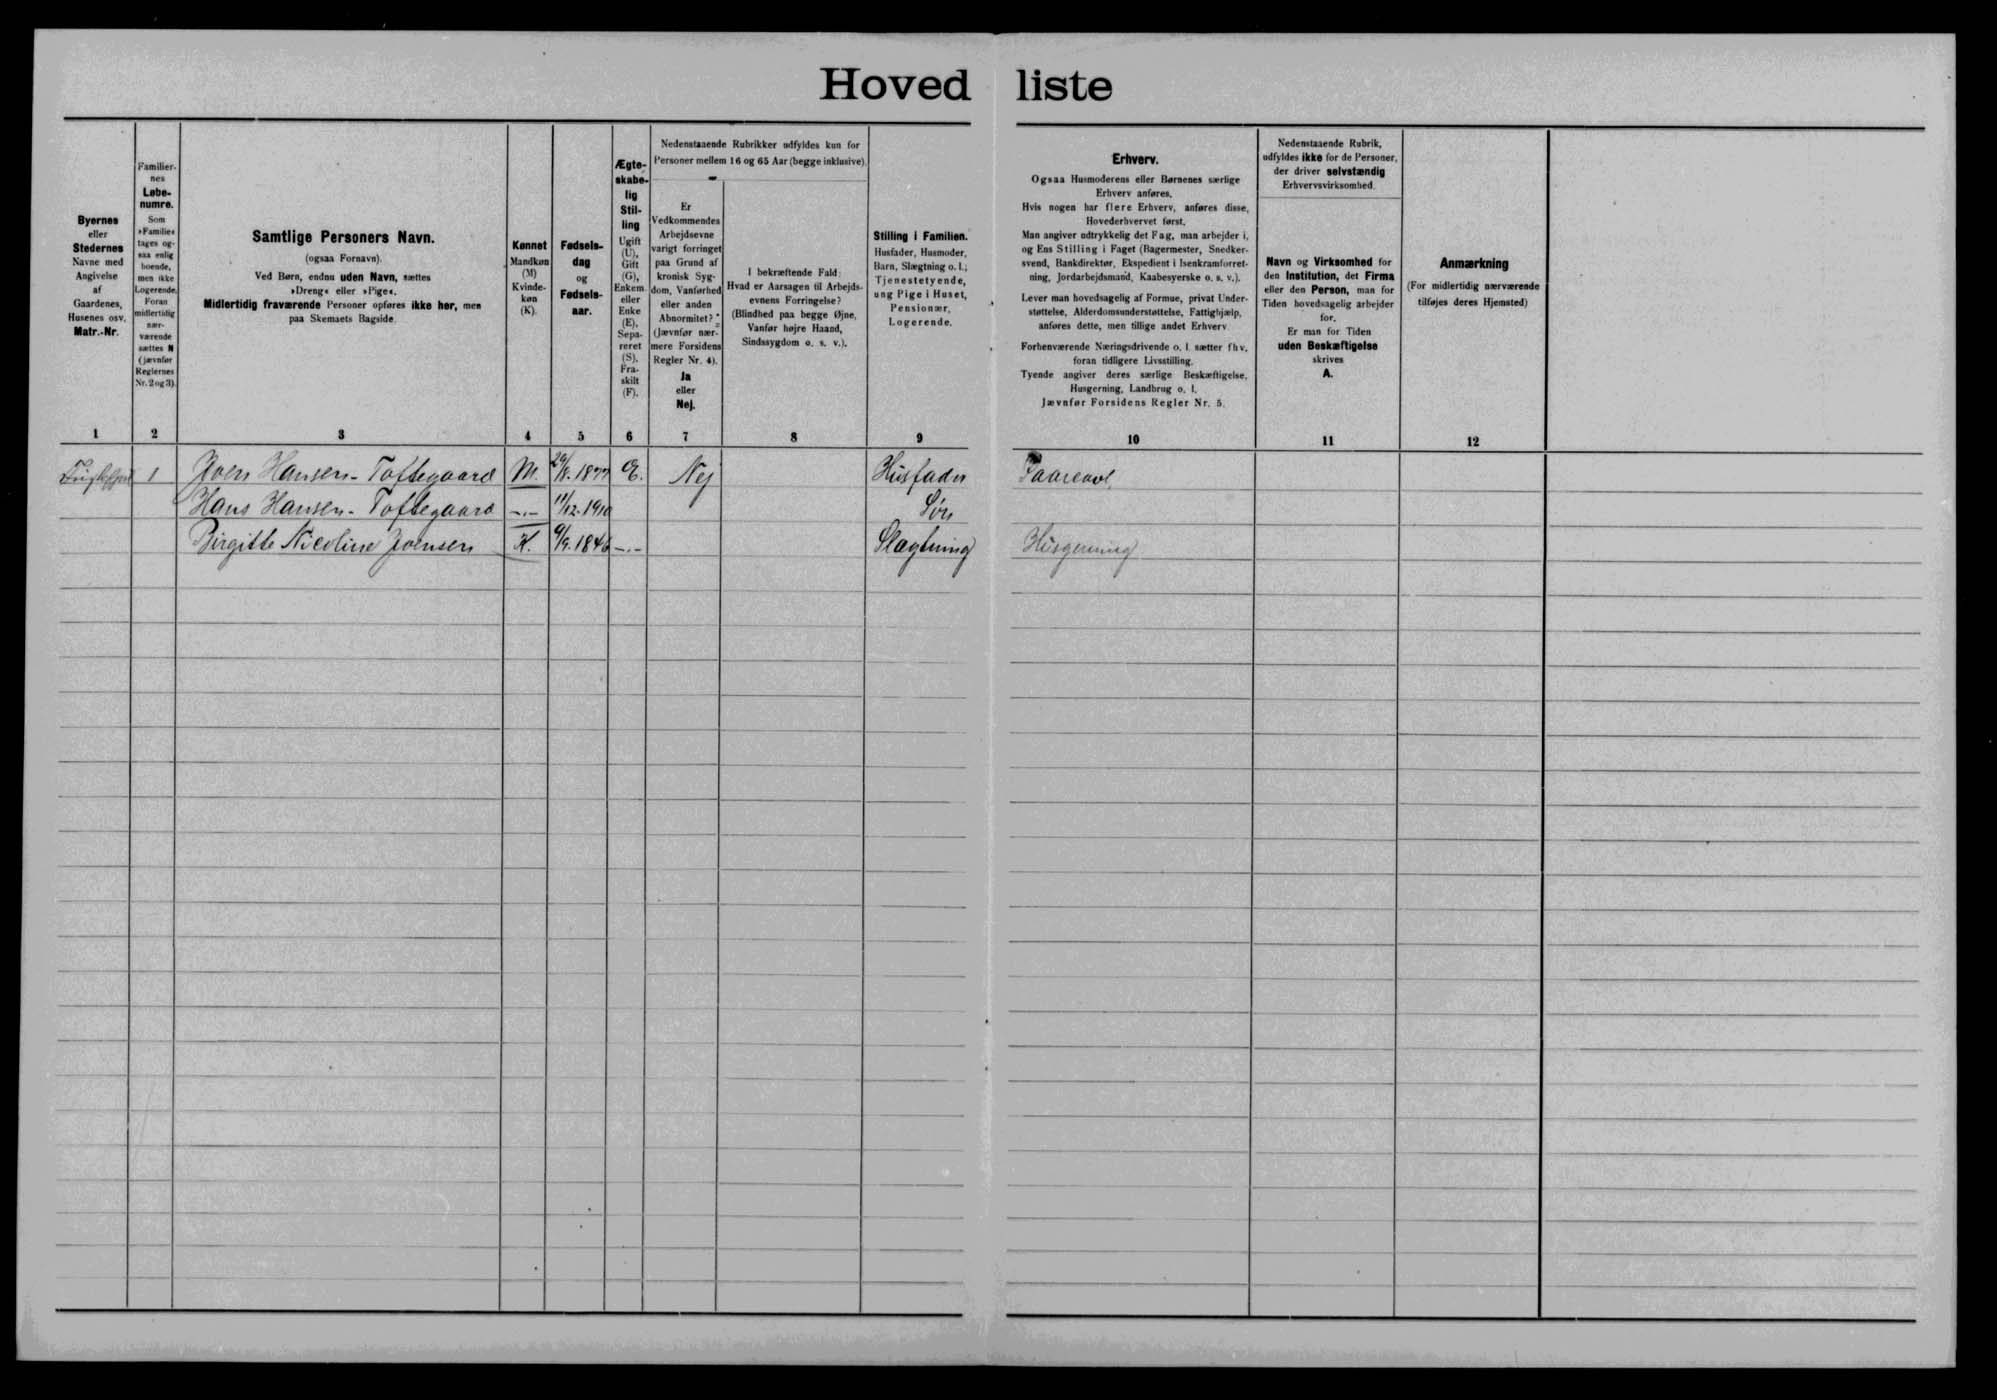 Hovedliste
Byernes
eller
Stedernes
Navne med
Angivelse
af
Gaardenes,
Husenes osv.
Matr.-Nr.
Familier-
nes
Løbe-
numre.
Som
»Familie«
tages og-
saa enlig
boende,
men ikke
Logerende.
Foran
midlertidig
nær-
værende
sættes N
(jævnfør
Reglernes
Nr. 2 og 3).
Samtlige Personers Navn.
(ogsaa Fornavn).
Ved Børn, endnu uden Navn, sættes
»Dreng« eller »Pige«.
Midlertidig fraværende Personer opføres ikke her, men
paa Skemaets Bagside.
Kønnet
Mandkøn
(M)
Kvinde-
køn
(K).
Fødsels-
dag
og
Fødsels-
aar.
Ægte-
skabe-
lig
Stil-
ling
Ugift
(U),
Gift
(G),
Enkem.
eller
Enke
(E),
Sepa-
reret
(S),
Fra-
skilt
(F).
Nedenstaaende Rubrikker udfyldes kun for
Personer mellem 16 og 65 Aar (begge inklusive).
Er
Vedkommendes
Arbejdsevne
varigt forringet
paa Grund af
kronisk Syg-
dom, Vanførhed
eller anden
Abnormitet?
(Jævnfør nær-
mere Forsidens
Regler Nr. 4).
Ja
eller
Nej.
I bekræftende Fald:
Hvad er Aarsagen til Arbejds-
evnens Forringelse?
(Blindhed paa begge Øjne,
Vanfør højre Haand,
Sindssygdom o. s. v.).
Stilling i Familien.
Husfader, Husmoder,
Barn, Slægtning o. l.;
Tjenestetyende,
ung Pige i Huset,
Pensionær,
Logerende.
Erhverv.
Ogsaa Husmoderens eller Børnenes særlige
Erhverv anføres.
Hvis nogen har flere Erhverv, anføres disse,
Hovederhvervet først.
Man angiver udtrykkelig det Fag, man arbejder i,
og Ens Stilling i Faget (Bagermester, Snedker-
svend, Bankdirektør, Ekspedient i Isenkramforret-
ning, Jordarbejdsmand, Kaabesyerske o. s. v.).
Lever man hovedsagelig af Formue, privat Under-
støttelse, Alderdomsunderstøttelse, Fattighjælp,
anføres dette, men tillige andet Erhverv.
Forhenværende Næringsdrivende o. l. sætter fhv.
foran tidligere Livsstilling.
Tyende angiver deres særlige Beskæftigelse,
Husgerning, Landbrug o. l.
Jævnfør Forsidens Regler Nr. 5.
Nedenstaaende Rubrik,
udfyldes ikke for de Personer,
der driver selvstændig
Erhvervsvirksomhed.
Navn og Virksomhed for
den Institution, det Firma
eller den Person, man for
Tiden hovedsagelig arbejder
for.
Er man for Tiden
uden Beskæftigelse
skrives
A.
Anmærkning
(For midlertidig nærværende
tilføjes deres Hjemsted)
1 2 3 4 5 6 7 8 9 10 11 12
1 Joen Hansen-Toftegaard M. 29/8.1877 E. Nej Husfader Faareavl
Hans Hansen-Toftegaard -"- 11/12.1910 Søn
Birgitte Nicoline Joensen K. 9/9.1846 -"- Slægtning Husgerning